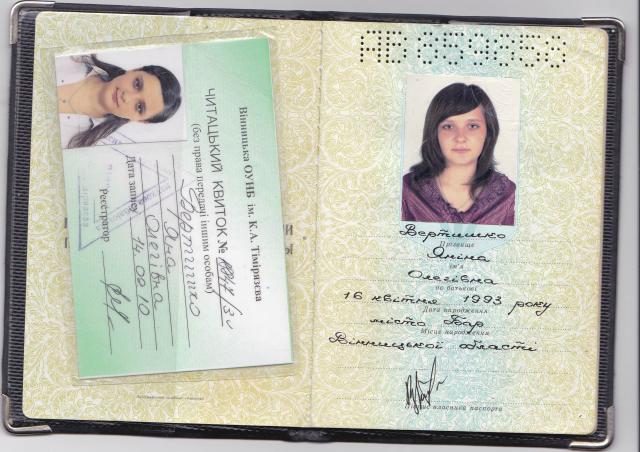 Вінницька ОУНБ ім. К.А. Тімірязєва
ЧИТАЦЬКИЙ КВИТОК №
(без права передачі іншим особам)
Вертипко
Яна
Олегівна
Дата запису 14.09.10
Реєстратор
Вертипко
Прізвище
Яніна
Ім'я
Олегівна
по батькові
16 квітня 1993 року
Дата народження
місто Бар
Місце народження
Вінницької області
Підпис власника паспорта